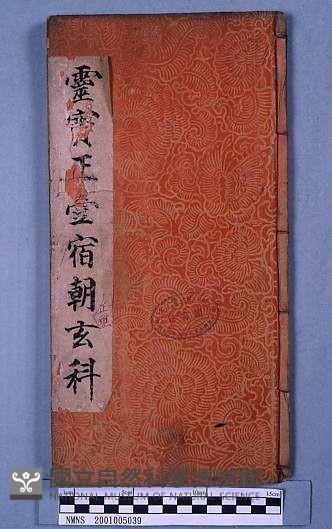 靈寶正壹宿朝玄科
國立自然科學博物館
NATIONAL MUSEUM OF NATURAL SCIENCE
5cm
10cm
15cm
NMNS 2001005039